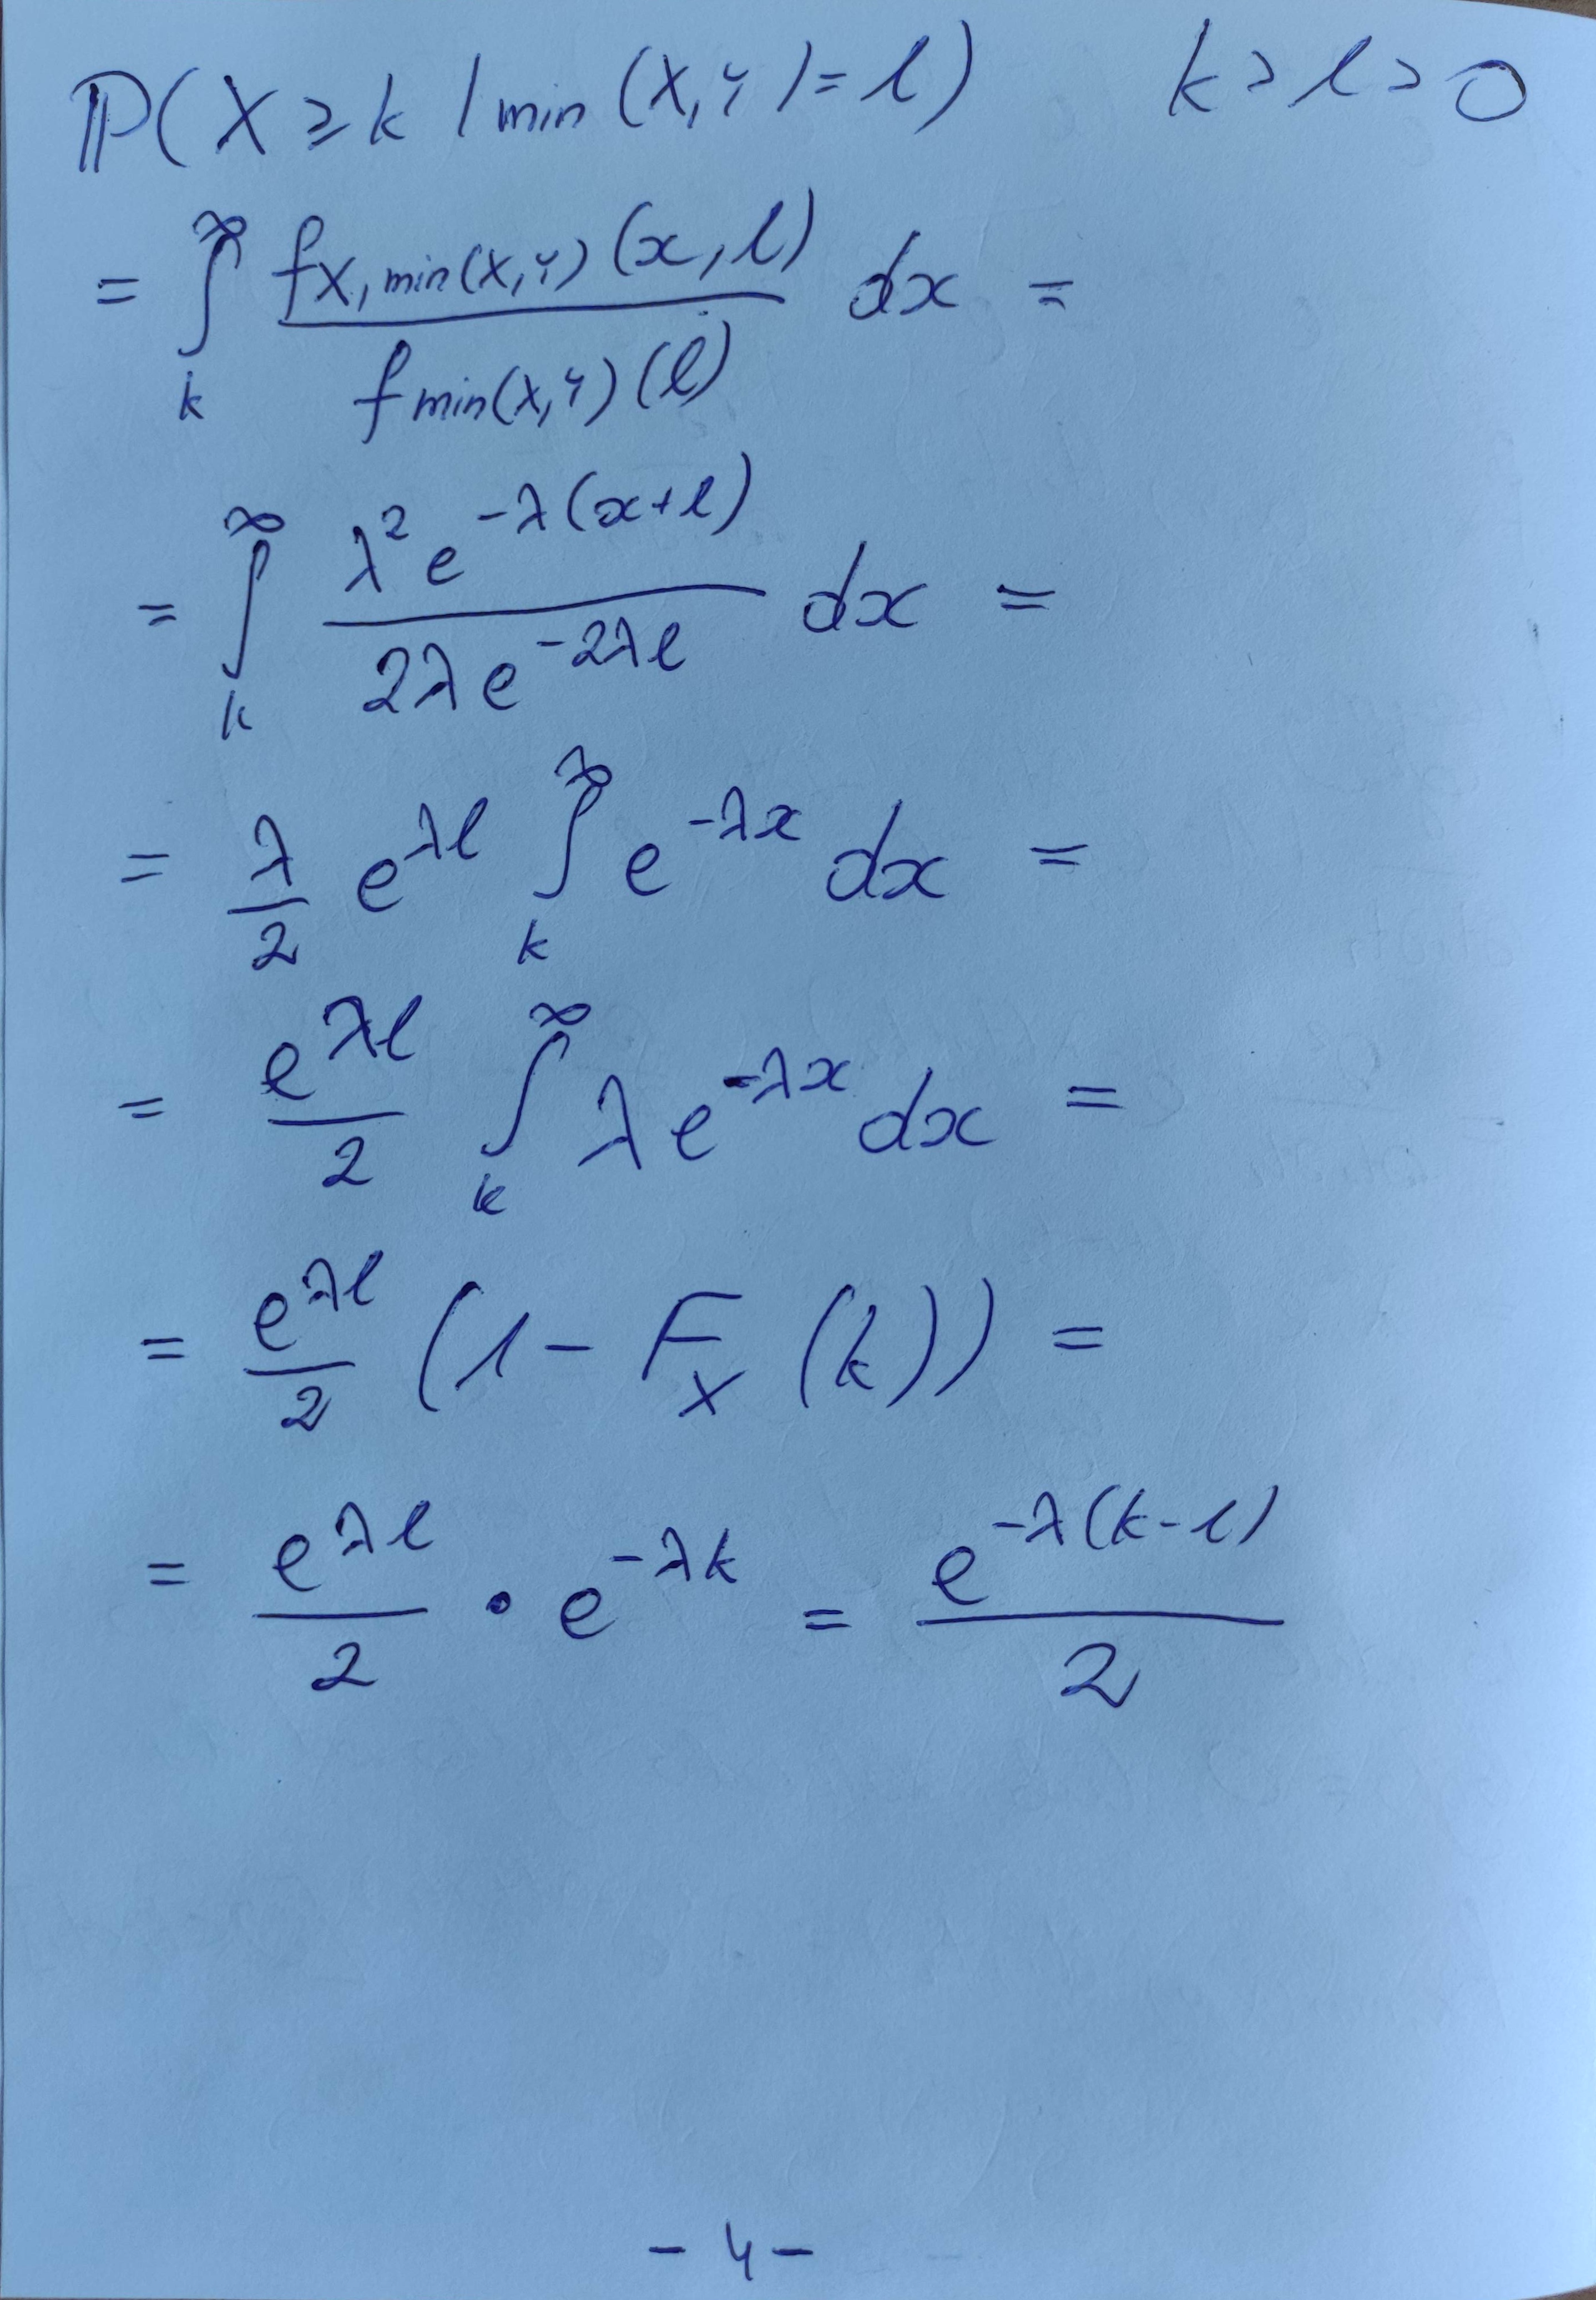 ℙ(X ≥ k | min(X,Y) = l)    k > l > 0
= ∫_k^∞ f_{X,min(X,Y)}(x,l) / f_{min(X,Y)}(l) dx =
= ∫_k^∞ λ² e^{-λ(x+l)} / 2λe^{-2λl} dx =
= λ/2 e^{λl} ∫_k^∞ e^{-λx} dx =
= e^{λl}/2 ∫_k^∞ λe^{-λx} dx =
= e^{λl}/2 (1 - F_X(k)) =
= e^{λl}/2 • e^{-λk} = e^{-λ(k-l)}/2
- 4 -